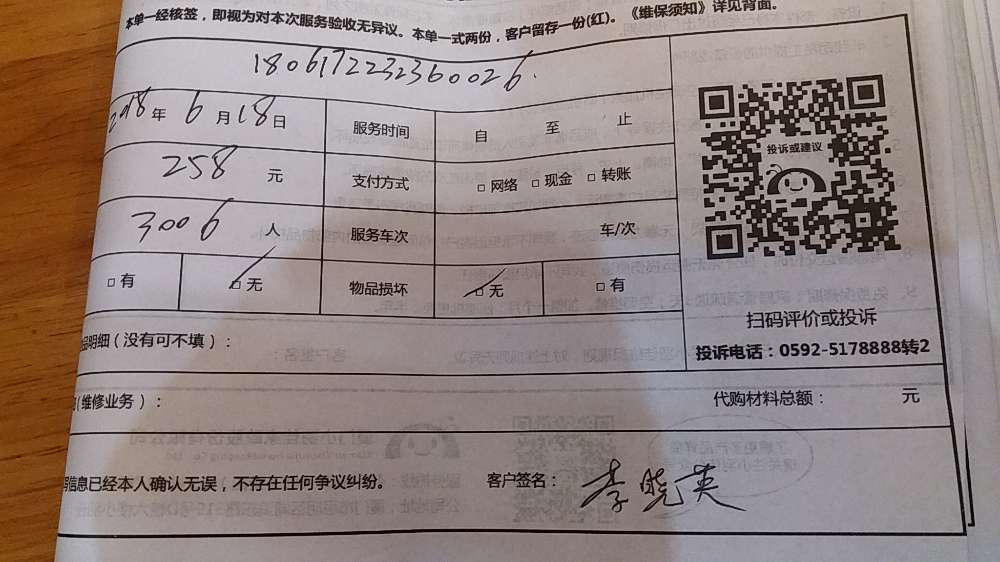 本单一经核签，即视为对本次服务验收无异议。本单一式两份，客户留存一份(红)。《维保须知》详见背面。
1806172232360026
2018年6月18日 服务时间 自 至 止
258 元 支付方式 □ 网络 □ 现金 □ 转账
3006 人 服务车次 车/次
□ 有 □ 无 物品损坏 □ 无 □ 有
投诉或建议
扫码评价或投诉
投诉电话：0592-5178888转2
品明细（没有可不填）：
(维修业务)： 代购材料总额： 元
信息已经本人确认无误，不存在任何争议纠纷。 客户签名：李晓英